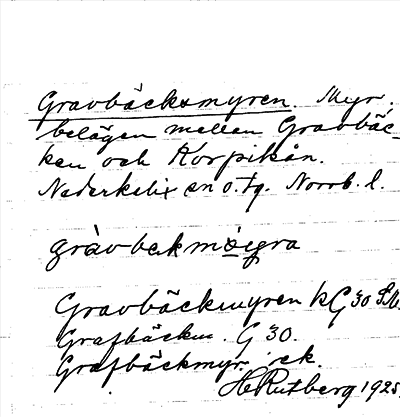 Gravbäcksmyren. Myr.
belägen mellan Gravbäc-
ken och Korpikån.
Nederkalix sn o. tg. Norrb. l.
Gravbäckmyren kG 30 S.V.
Grafbäcken. G 30.
Grafbäckmyr. ek.
H Rutberg 1925.